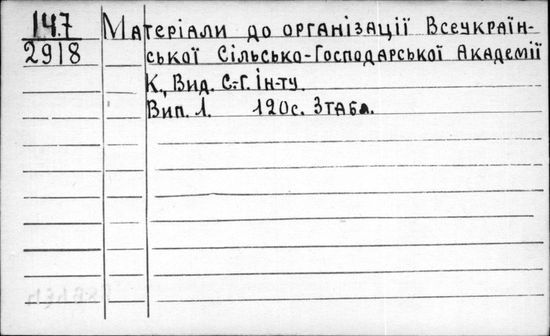 147
2918
Матеріали до організації Всеукраїн-
ської Сільсько-Господарської Академії
К., Вид. С.-Г. Ін-ту.
Вип. 1. 120с. 3табл.